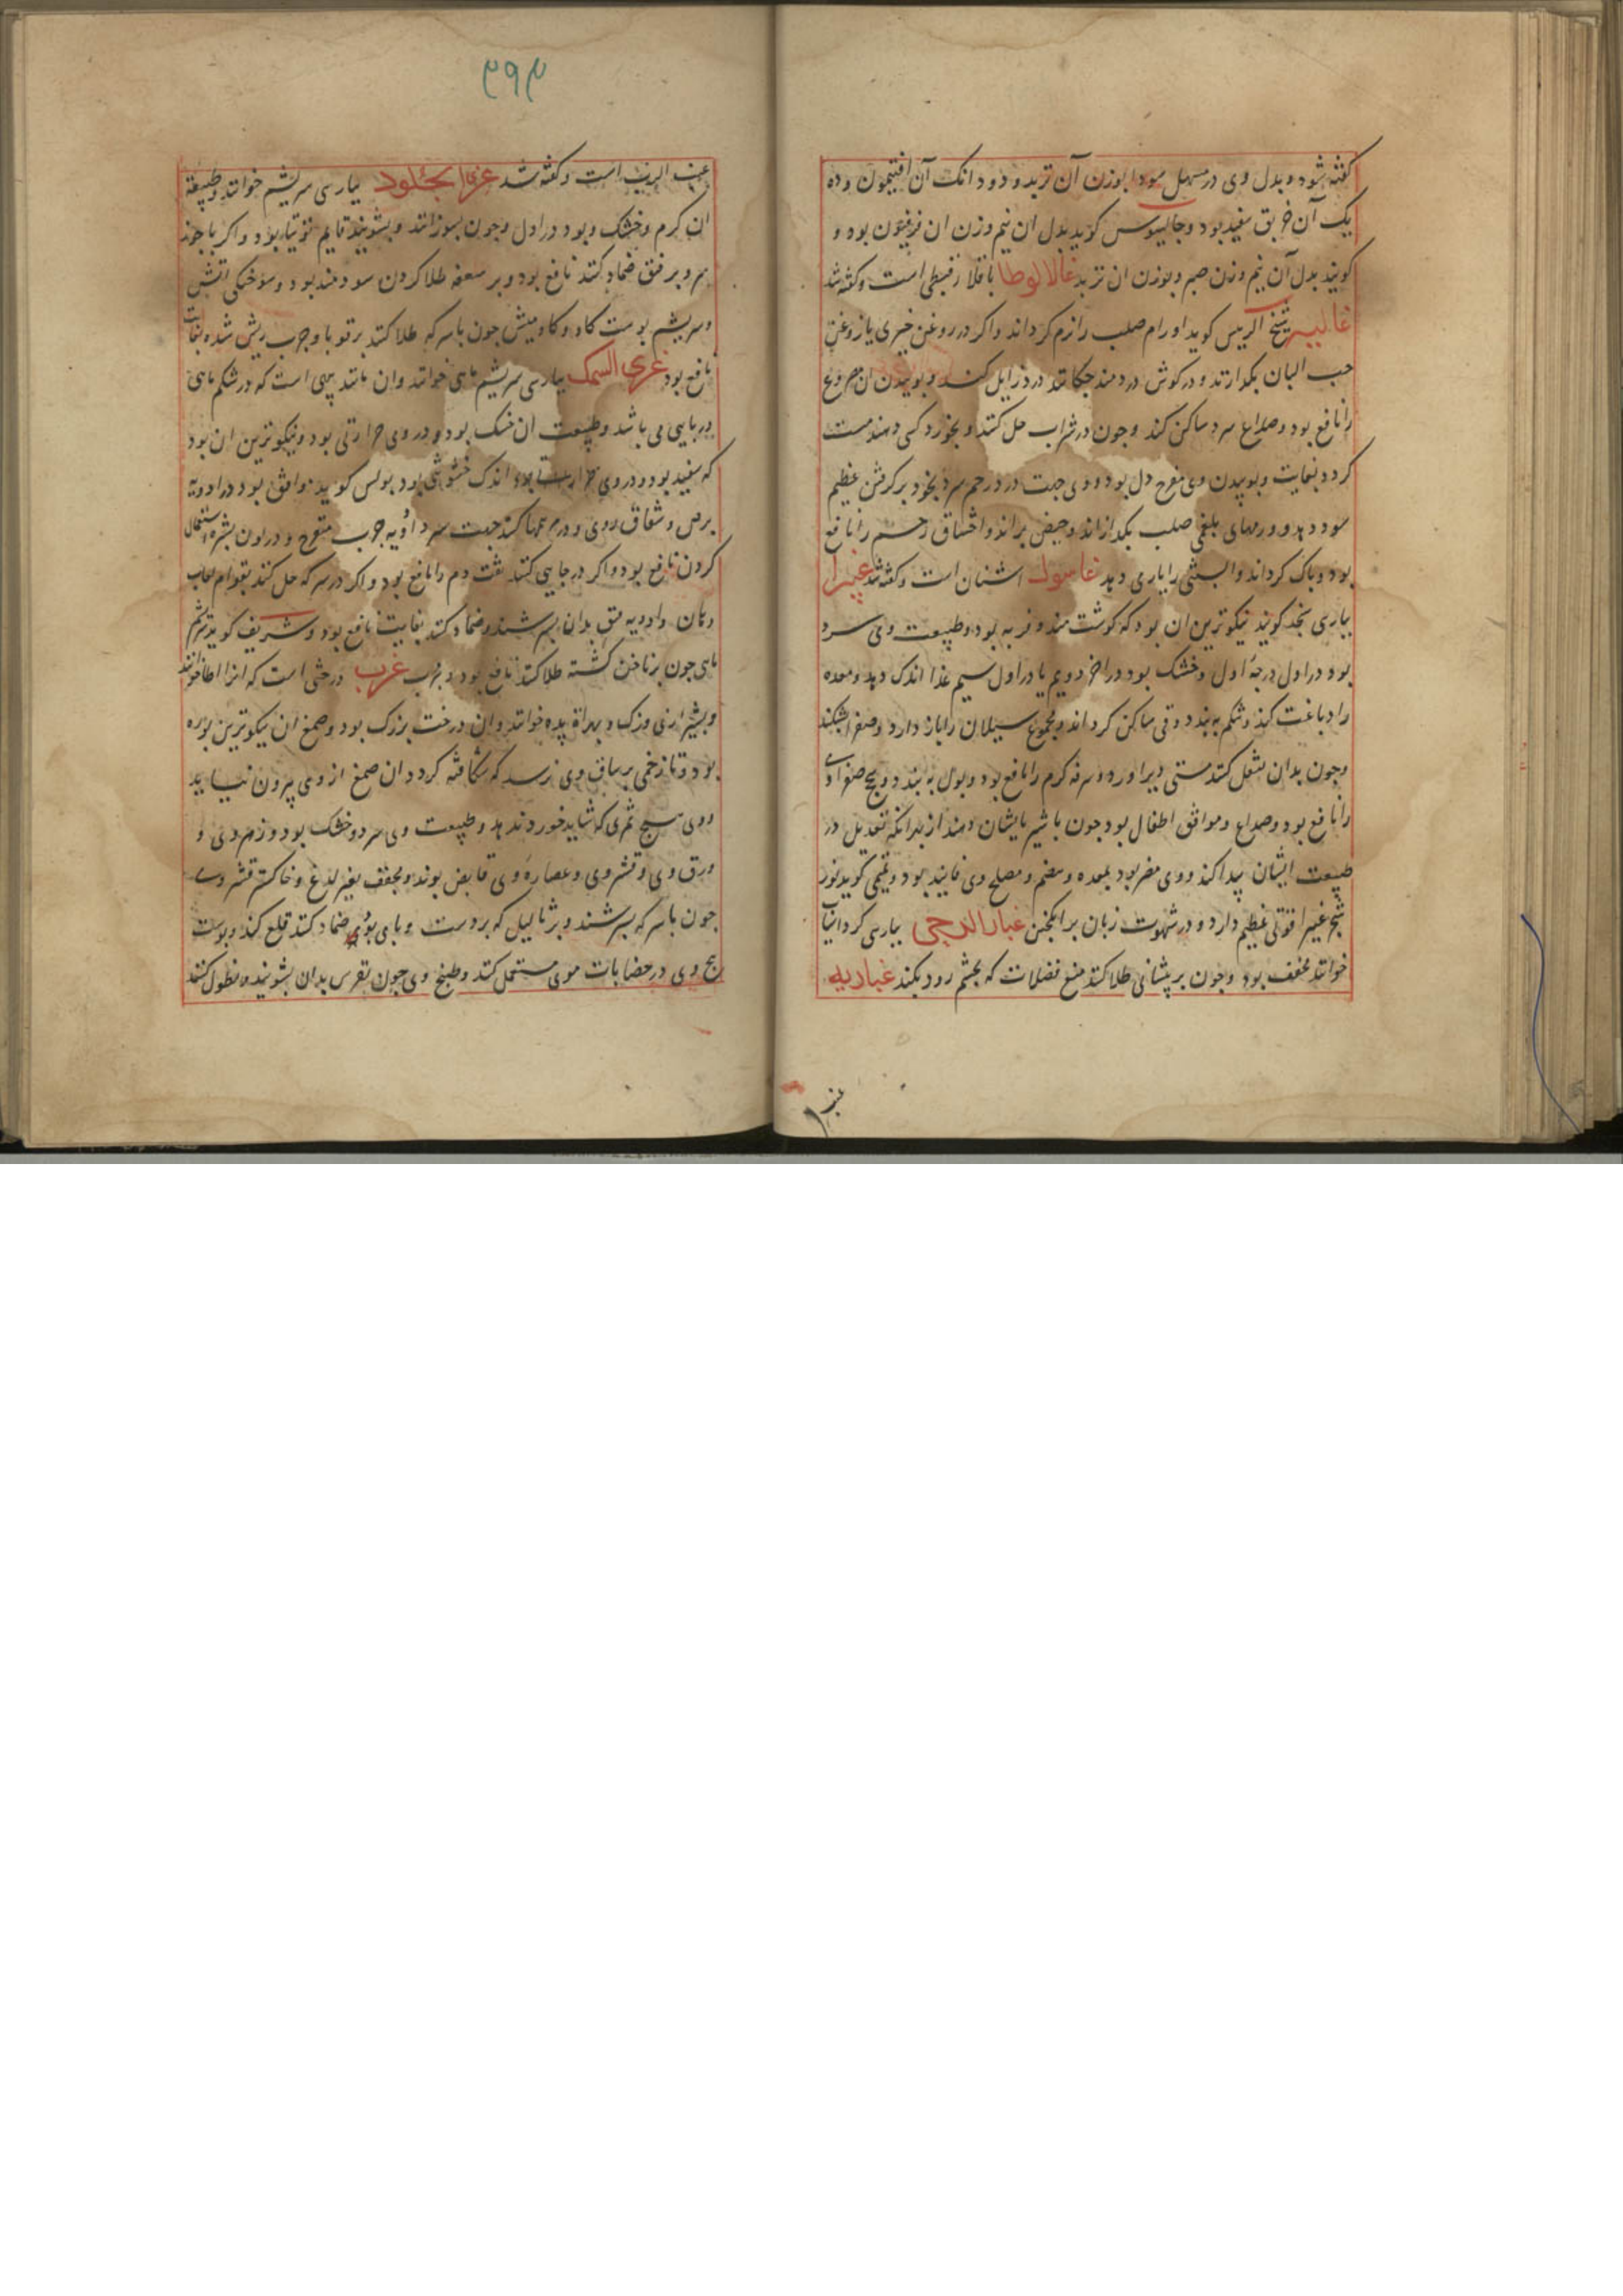 کفته شود و بدل وی در مسهل سودا بوزن آن تربد و دو دانک آن افتیمون و ده
یک آن خربق سفید بود و جالینوس کوید بدل ان نیم وزن ان فرفیون بود و
کویند بدل آن نیم وزن صبر و بوزن ان تربد غالالوطا باقلا قبطی است و کفته شد
غالیه شیخ الرییس کوید اورام صلب را نرم کرداند و اکر در روغن خیری یا روغن
حب البان بکدازند و در کوش دردمند جکانند درد زایل کند و بوییدن ان مصروع
را نافع بود و صداع سرد ساکن کند و جون در شراب حل کنند و بخورد کسی دهند مست
کردد بغایت و بوییدن وی مفرح دل بود و وی جهت درد رحم سرد بخود برکرفتن عظیم
سود دهد و ورمهای بلغمی صلب بکدازاند و حیض براند و اختناق رحم را نافع
بود و پاک کرداند و آبستنی را یاری دهد غاسول اشنان است و کفته شد غبیرا
بپارسی سنجد کویند نیکوترین ان بود که کوشت مند و فربه بود و طبیعت وی سرد
بود در اول درجهٔ اول و خشک بود در اخر دویم یا در اول سیم غذا اندک دهد و معده
را دباغت کند و شکم ببندد و قی ساکن کرداند و مجموع سیلان را باز دارد و صفرا بشکند
و جون بدان تنقل کنند مستی دیر اورد و سرفه کرم را نافع بود و بول ببندد و سحج صفراوی
را نافع بود و صداع و موافق اطفال بود جون با شیر بایشان دهند از برانکه تعدیل در
طبیعت ایشان پیدا کند و وی مضر بود بمعده و هضم و مصلح وی فانیذ بود و تمیمی کوید نور
شجر غبیرا قوتی عظیم دارد و در شهوت زنان برانکیختن غبار الرحی بپارسی کرد اسیا
خوانند مجفف بود و جون بر پیشانی طلا کنند منع فضلات که بجشم رود بکند غباریه
عنب
عنب الدب است و کفته شد غری الجلود بپارسی سریشم خوانند و طبیعة
ان کرم و خشک بود در اول و جون بسوزانند و بشویند قایم توتیا بود و اکر با جوز
سرو بر فتق ضماد کنند نافع بود و بر سعفه طلا کردن سودمند بود و سوختکی اتش
و سریشم پوست کاو و کاومیش جون با سرکه طلا کنند بر قوبا و جرب ریش شده بغایت
نافع بود غری السمک بپارسی سریشم ماهی خوانند وان مانند پیهی است که در شکم ماهی
دریایی می باشد و طبیعت ان خشک بود و در وی حرارتی بود و نیکوترین ان بود
که سفید بود و در وی اندک خشونتی بود بولس کوید موافق بود در ادویه
برص و شقاق روی و در مرهمها کنند جهت سر و ادویه جرب متقرح و در لون بشره استعمال
کردن نافع بود و اکر در حسایی کنند نفث دم را نافع بود و اکر در سرکه حل کنند بقوام لعاب
دهان و ادویه فتق بدان بسرشند و ضماد کنند بغایت نافع بود و شریف کوید سریشم
ماهی جون بر ناخن کشته طلا کنند نافع بود غرب درختی است که انرا خوانند
و بشیرازی وزک و بهراة پده خوانند و ان درخت بزرک بود و صمغ ان نیکوترین بوره
بود و تا زخمی بر ساق وی نرسد که شکافته کردد ان صمغ از وی بیرون نیاید
و وی هیج ثمری که شاید خورد ندهد و طبیعت وی سرد و خشک بود و زهر وی و
ورق وی و قشر وی و عصارهٔ وی قابض بوند و مجفف بغیر لذع و خاکستر قشر وی
جون با سرکه بسرشند و بر ثالیل که بر دست و پای بود ضماد کنند قلع کند و پوست
بیخ وی در خضابات موی مستعمل کنند و طبیخ وی جون نقرس بدان بشویند و نطول کنند